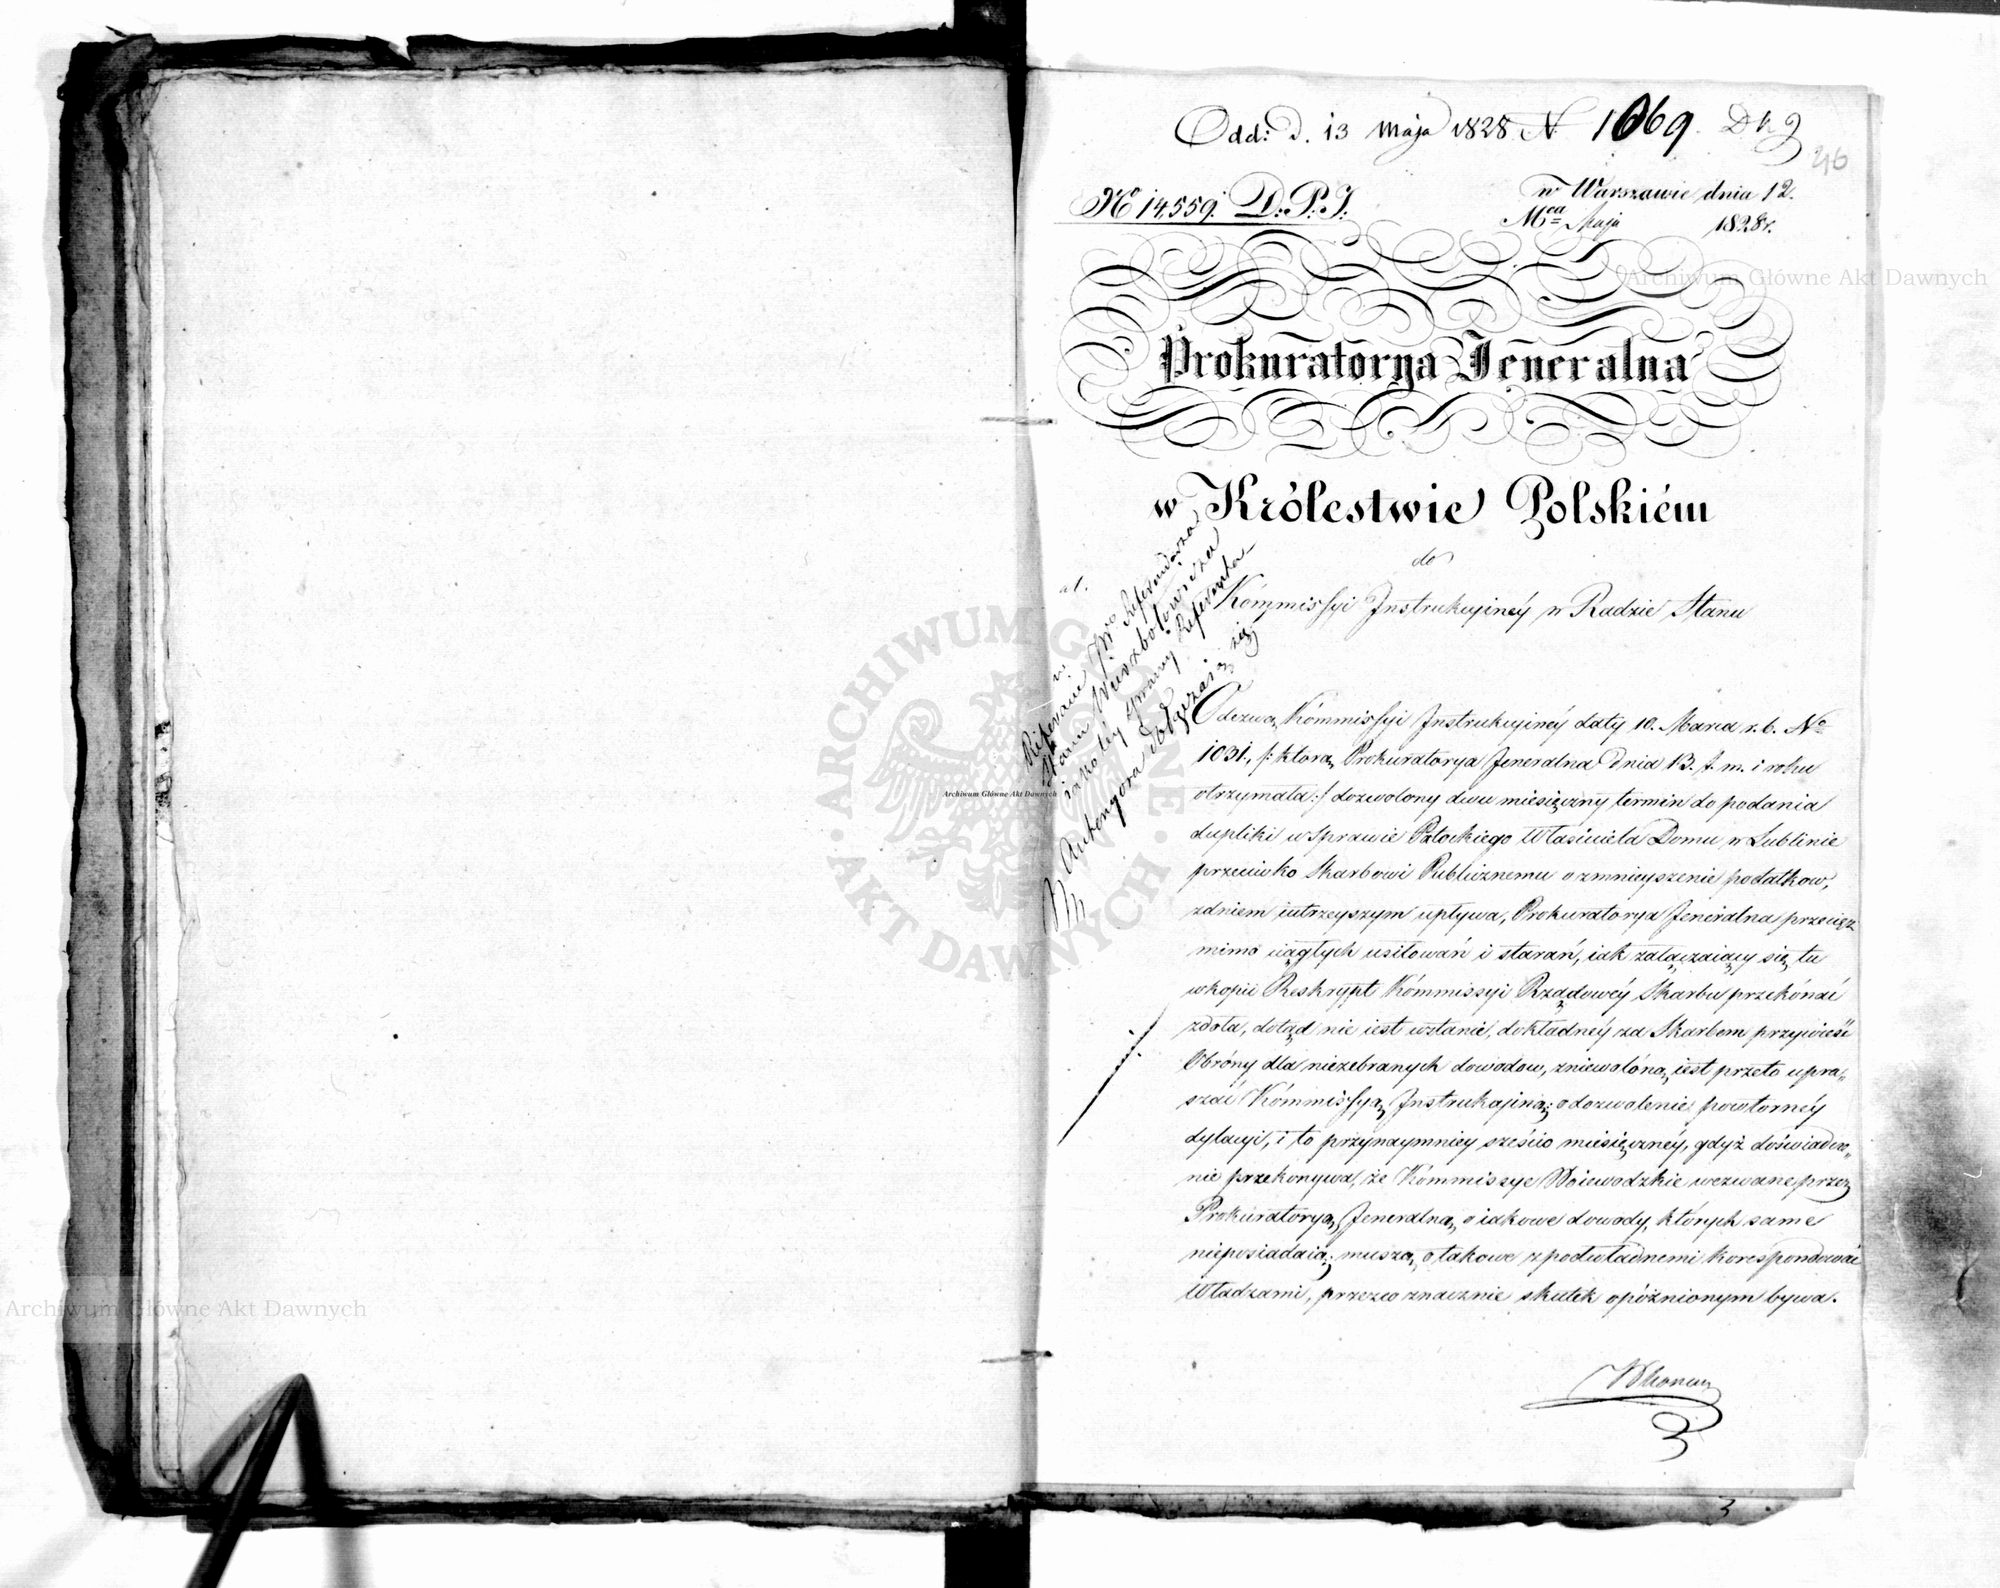 Odd: d. 13 Maja 1828 N. 1069. D k 9
46
No 14,559. D.P.J.
w Warszawie dnia 12.
Mca Maja 1828r.
Prokuratorya Jeneralna
w Królestwie Polskiém
do
Kómmissyi Instrukcyinéy w Radzie Stanu
at.
w
Referacie JW° Referendarza
Stanu Wierzbołowicza
iako tey sprawy Referenta
dołączaiąc się
Odezwą Kómmissyi Instrukcyinéy daty 10. Marca r.b. No
1031, /: którą Prokuratorya Jeneralna dnia 13. t. m. i roku
otrzymała:/ dozwolony dwu miesięczny termin do podania
dupliki w Sprawie Potockiego Właściciela Domu w Lublinie
przeciwko Skarbowi Publicznemu o zmnieyszenie podatkow,
zdniem iutrzeyszym upływa, Prokuratorya Jeneralna przecięż
mimo ciągłych usiłowań i starań, iak załączaiący się tu
w kopii Reskrypt Kómmissyi Rządowéy Skarbu przekónać
zdoła, dotąd nie iest wstanie, dokładnéy za Skarbem przywieść
Obróny dla niezebranych dowodow, zniewolóną iest przeto upra„
szać Kómmissyą Instrukcyiną o dozwolenie powtornéy
dylacyi, i to przynaymniey sześcio miesięcznéy, gdyż doświadcze„
nie przekonywa, że Kómmissye Woiewodzkie wezwane przez
Prokuratoryą Jeneralną o iakowe dowody, ktorych same
nieposiadaią; muszą o takowe z podwładnemi korespondować
Władzami, przezco znacznie skutek opóźnionym bywa.
3
Archiwum Główne Akt Dawnych
Archiwum Główne Akt Dawnych
Archiwum Główne Akt Dawnych
ARCHIWUM GŁÓWNE AKT DAWNYCH